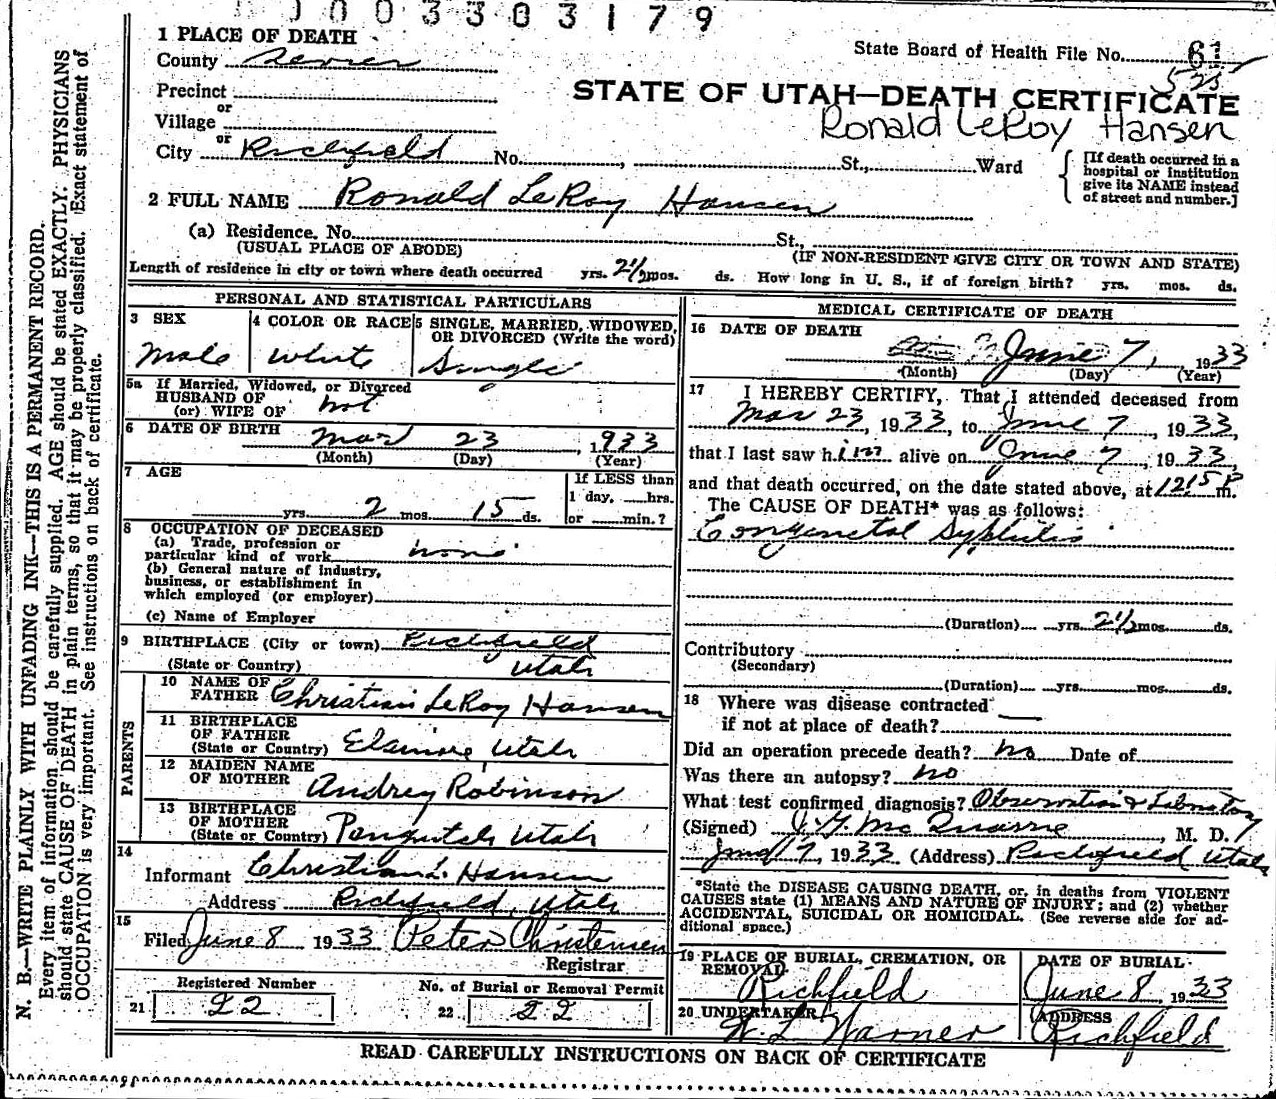 1003303179
1 PLACE OF DEATH
State Board of Health File No. 61
County Sevier
525
Precinct
STATE OF UTAH—DEATH CERTIFICATE
or
Village
Ronald LeRoy Hansen
or
City Richfield No. , St., Ward
[If death occurred in a
hospital or institution
give its NAME instead
of street and number.]
2 FULL NAME Ronald LeRoy Hansen
(a) Residence. No. St.,
(USUAL PLACE OF ABODE) (IF NON-RESIDENT GIVE CITY OR TOWN AND STATE)
Length of residence in city or town where death occurred yrs. 2 1/2 mos. ds. How long in U. S., if of foreign birth? yrs. mos. ds.
PERSONAL AND STATISTICAL PARTICULARS
3 SEX
Male
4 COLOR OR RACE
White
5 SINGLE, MARRIED, WIDOWED,
OR DIVORCED (Write the word)
Single
5a If Married, Widowed, or Divorced
HUSBAND OF
(or) WIFE OF not
6 DATE OF BIRTH Mar 23, 1933
(Month) (Day) (Year)
7 AGE
yrs. 2 mos. 15 ds.
If LESS than
1 day, hrs.
or min.?
8 OCCUPATION OF DECEASED
(a) Trade, profession or
particular kind of work none
(b) General nature of industry,
business, or establishment in
which employed (or employer)
(c) Name of Employer
9 BIRTHPLACE (City or town) Richfield
(State or Country) Utah
PARENTS
10 NAME OF
FATHER Christian LeRoy Hansen
11 BIRTHPLACE
OF FATHER
(State or Country) Elsinore, Utah
12 MAIDEN NAME
OF MOTHER Audrey Robinson
13 BIRTHPLACE
OF MOTHER
(State or Country) Panguitch Utah
14
Informant Christian L. Hansen
Address Richfield, Utah
15
Filed June 8 1933 Peter Christensen
Registrar
21 Registered Number
22
22 No. of Burial or Removal Permit
22
MEDICAL CERTIFICATE OF DEATH
16 DATE OF DEATH
June 7, 1933
(Month) (Day) (Year)
17 I HEREBY CERTIFY, That I attended deceased from
Mar 23, 1933, to June 7, 1933,
that I last saw h im alive on June 7, 1933,
and that death occurred, on the date stated above, at 12:15 P m.
The CAUSE OF DEATH* was as follows:
Congenetal Syphilis
(Duration) yrs. 2 1/2 mos. ds.
Contributory
(Secondary)
(Duration) yrs. mos. ds.
18 Where was disease contracted
if not at place of death? —
Did an operation precede death? no Date of
Was there an autopsy? no
What test confirmed diagnosis? Observation & Laboratory
(Signed) J. G. McQuarrie, M. D.
June 7, 1933 (Address) Richfield Utah
*State the DISEASE CAUSING DEATH, or, in deaths from VIOLENT
CAUSES state (1) MEANS AND NATURE OF INJURY; and (2) whether
ACCIDENTAL, SUICIDAL OR HOMICIDAL. (See reverse side for ad-
ditional space.)
19 PLACE OF BURIAL, CREMATION, OR
REMOVAL
Richfield
DATE OF BURIAL
June 8, 1933
20 UNDERTAKER
W. L. Warner
ADDRESS
Richfield
READ CAREFULLY INSTRUCTIONS ON BACK OF CERTIFICATE
N. B.—WRITE PLAINLY WITH UNFADING INK—THIS IS A PERMANENT RECORD.
Every item of information should be carefully supplied. AGE should be stated EXACTLY. PHYSICIANS
should state CAUSE OF DEATH in plain terms, so that it may be properly classified. Exact statement of
OCCUPATION is very important. See instructions on back of certificate.